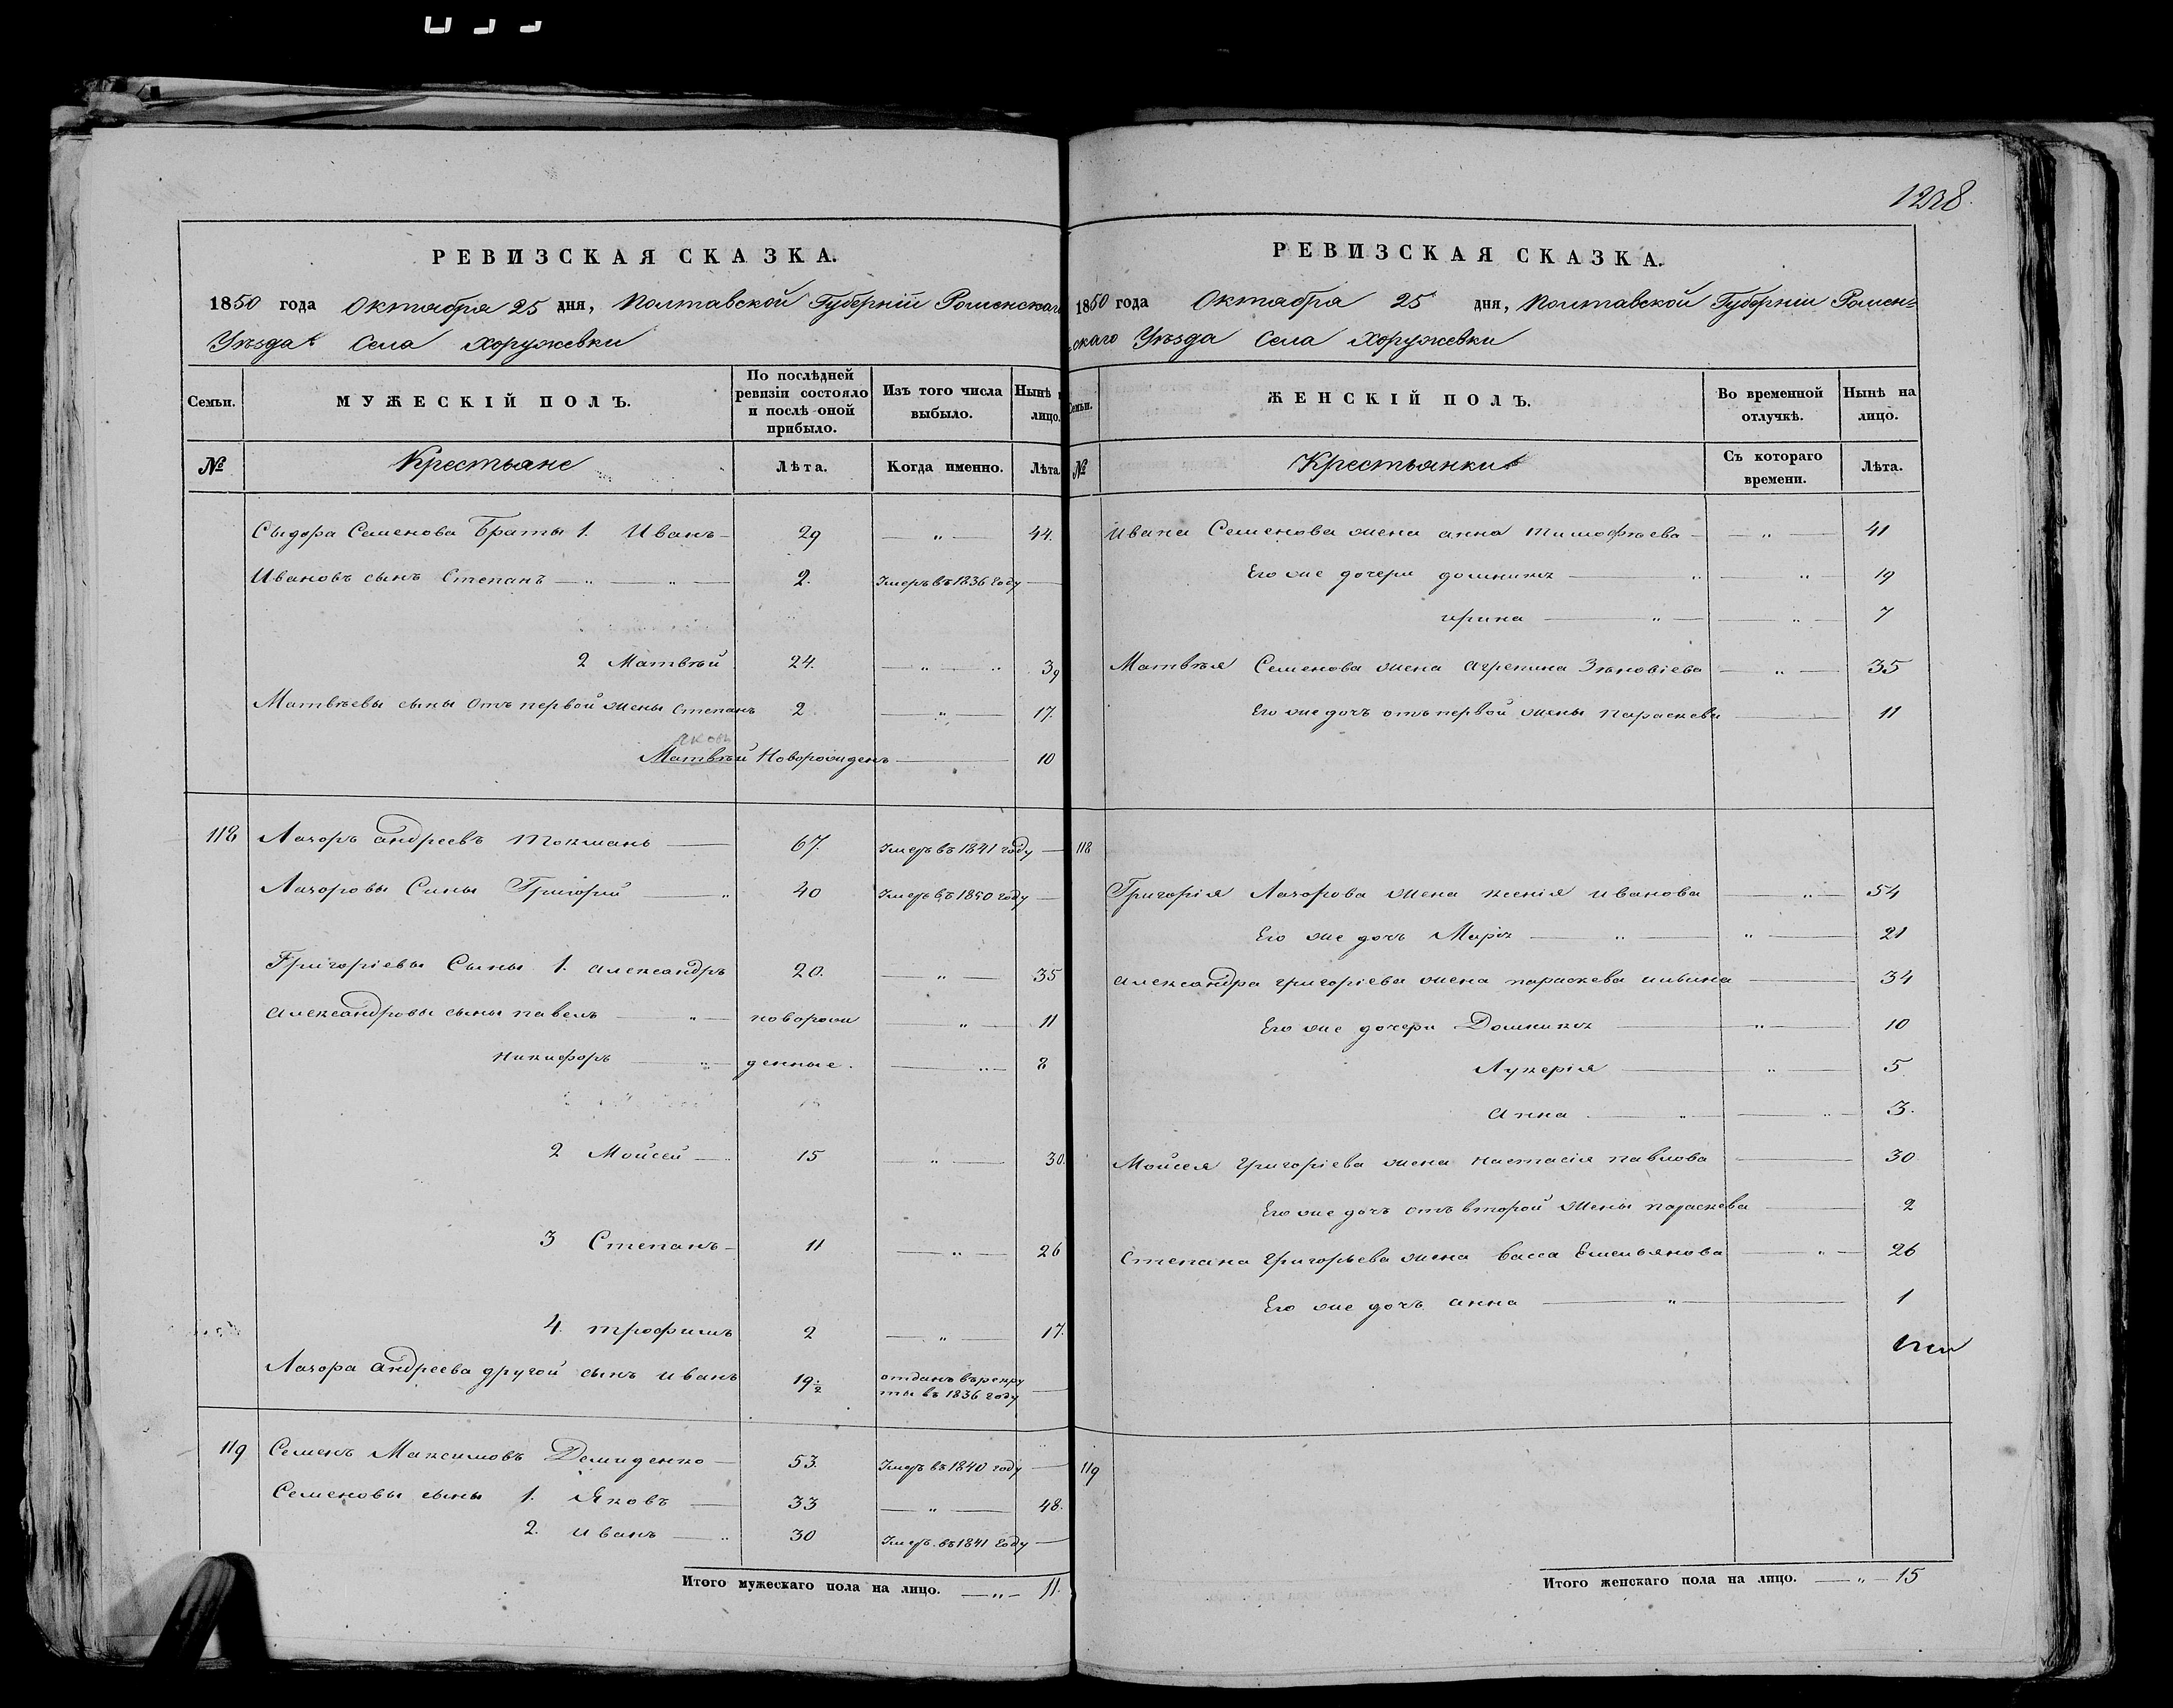 РЕВИЗСКАЯ СКАЗКА.
1850 года Октября 25 дня, Полтавской Губерніи Роменскаго
Уѣзда Села Хоружевки
Семьи.
МУЖЕСКІЙ ПОЛЪ.
По послѣдней
ревизіи состояло
и послѣ оной
прибыло.
Изъ того числа
выбыло.
Нынѣ
лицо.
№
Крестьяне
Лѣта.
Когда именно.
Лѣта
Сыдора Семенова Браты 1. Иванъ 29 — „ — 44.
Ивановъ сынъ Степанъ — „ — „ — 2. Умеръ въ 1836 году —
2 Матвѣй 24. — „ — „ 39
Матвѣевы сыны отъ первой жены Степанъ 2 — „ — 17.
Яковъ
Матвѣй Новорожденъ — 10
118 Лазоръ андреевъ Токмань — 67. Умеръ въ 1841 году —
Лазоровы Сыны Григорій — „ 40 Умеръ въ 1850 году —
Григоріевы Сыны 1. александръ 20. — „ — 35
александровы сыны павелъ — „ — новорож „ — 11
никифоръ — „ денные. — „ 8
2 Мойсей — 15 — „ — 30.
3 Степанъ — 11 — „ — 26
4. трофимъ 2 — „ — 17.
Лазора андреева другой сынъ иванъ 19½ отданъ въ рекру
ты въ 1836 году —
119 Семенъ Максимовъ Демиденко — 53. Умеръ въ 1840 году —
Семеновы сыны 1. Яковъ — 33 — „ — 48.
2. иванъ — „ 30 Умеръ въ 1841 году —
Итого мужескаго пола на лицо. — „ — 11.
РЕВИЗСКАЯ СКАЗКА.
1850 года Октября 25 дня, Полтавской Губерніи Ромен=
скаго Уѣзда Села Хоружевки
Семьи.
ЖЕНСКІЙ ПОЛЪ.
Во временной
отлучкѣ.
Нынѣ на
лицо.
№
Крестьянки
Съ котораго
времени.
Лѣта.
Ивана Семенова жена анна тимофѣева — — „ — 41
Его же дочери домникія — „ — „ — 19
ирина — „ — „ — 7
Матвѣя Семенова жена агрепина Зѣновіева — „ — 35
Его же дочь отъ первой жены параскева — 11
118
Григорія Лазорова жена ксенія иванова — „ — 54
Его же дочь Марія — „ — „ — 21
александра григоріева жена параскева ильина — 34
Его же дочери Домникія — „ — 10
Лукерія — „ — 5
анна — „ — „ — 3.
Мойсея григоріева жена настасія павлова — 30
Его же дочь отъ второй жены параскева — 2
Степана григорьева жена васса Емельянова — „ — 26
Его же дочь анна — „ — 1
119
Итого женскаго пола на лицо. — „ — 15